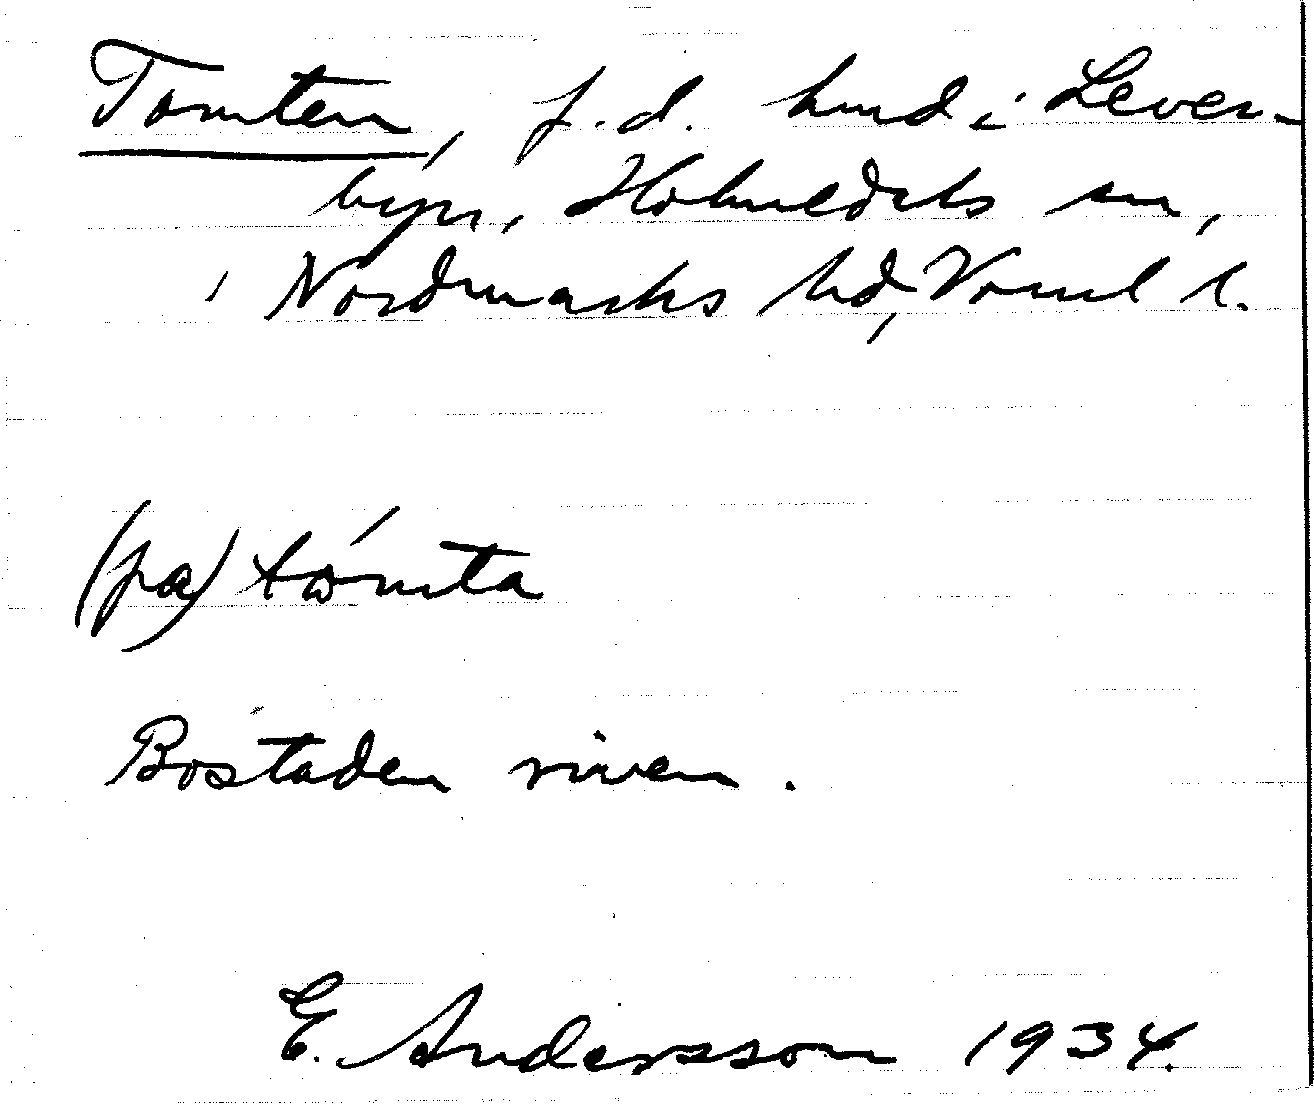 Tomten, f.d. hmd i Lever-
byn, Holmedals sn,
Nordmarks hd, Värml l.
(pa) tömta
Bostaden riven.
E. Andersson 1934.